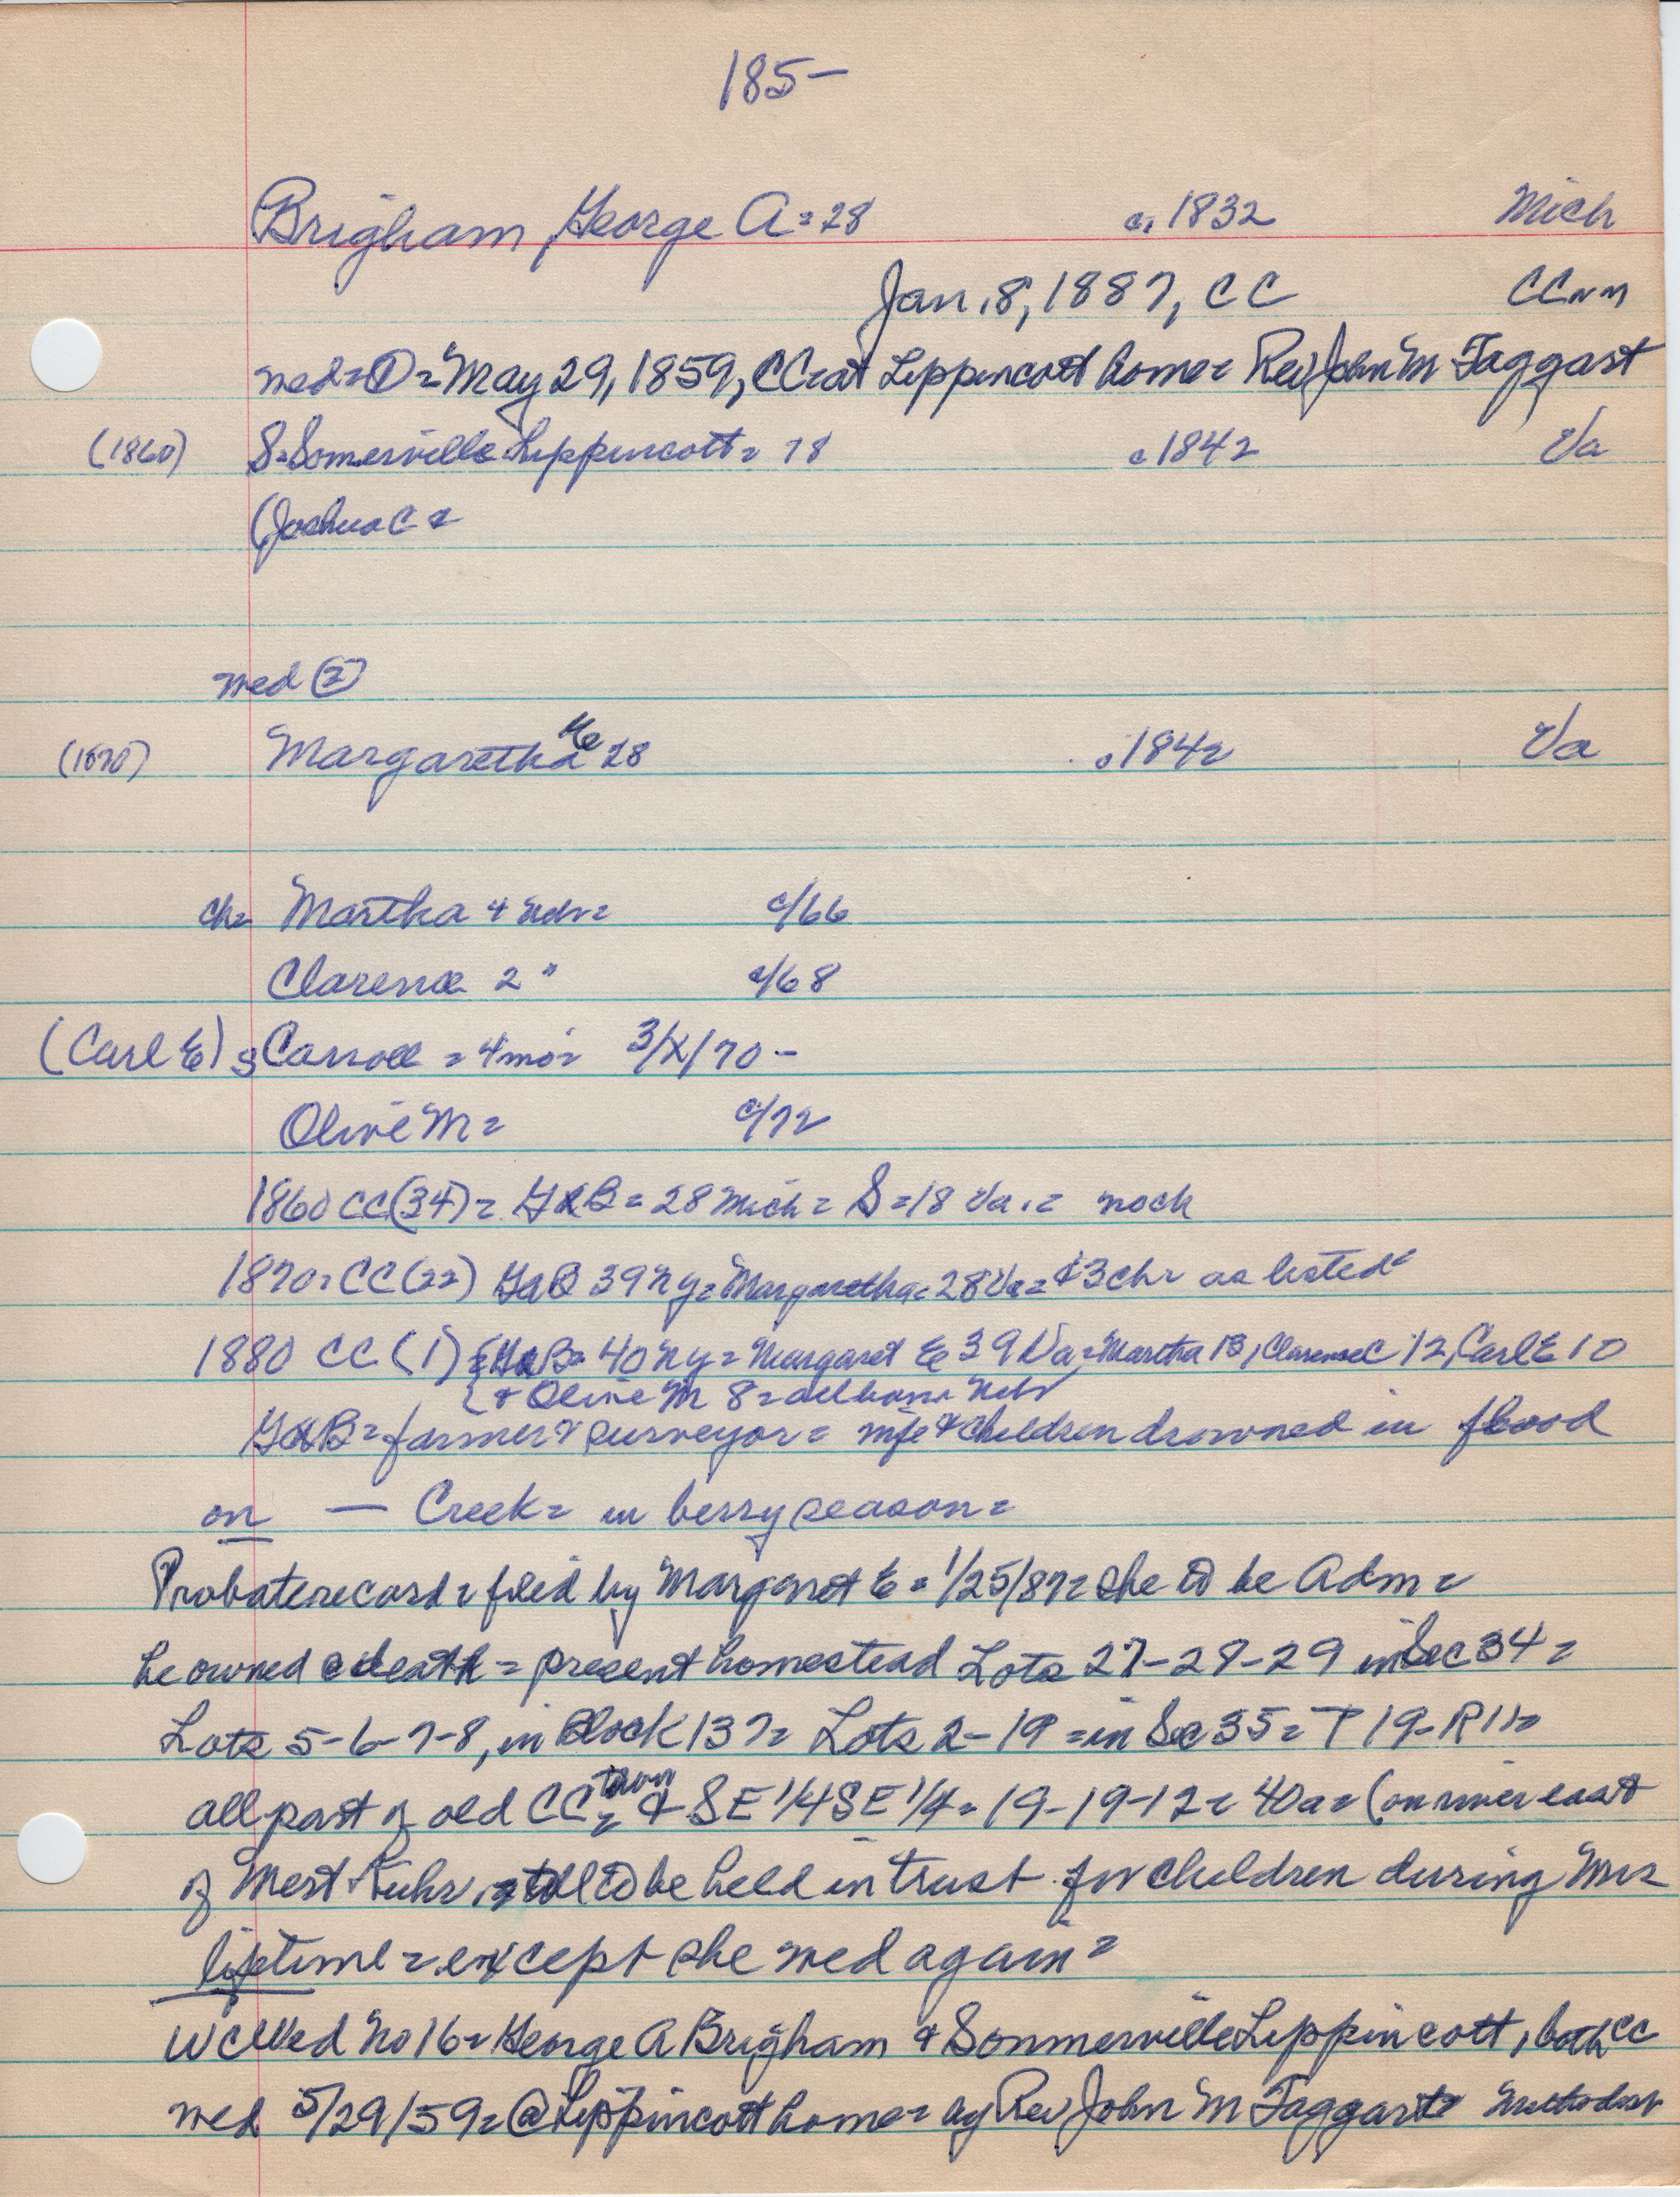 185-
Brigham, George A = 28 c. 1832 Mich
Jan. 8, 1887, CC CCnm
wed = ① = May 29, 1859, CC = at Lippincott home = Rev John M Taggart
(1860) S = Somerville Lippincott = 18 c 1842 Va
(Joshua C =
wed ②
(1870) Margaretha 28 c 1842 Va
ch = Martha 4 Nebr = c/66
Clarence 2 " c/68
(Carl E) s Carroll = 4 mo = 3/X/70 -
Olive M = c/72
1860 CC (34) = GAB = 28 Mich = S = 18 Va. = no ch
1870 = CC (22) GAB 39 NY = Margaretha = 28 Va = & 3 chr as listed
1880 CC (1) = GAB = 40 NY = Margaret E 39 Va = Martha 13, Clarence C 12, Carl E 10
& Olive M 8 = all born Nebr
GAB = farmer & surveyor = wife & children drowned in flood
on — Creek = in berry season =
Probate record = filed by Margaret E = 1/25/87 = she to be Adm =
he owned @ death = present homestead Lots 27-28-29 in Sec 34 =
Lots 5-6-7-8, in Block 137 = Lots 2-19 = in Sec 35 = T 19 - R 11 =
all part of old CC town = & SE 1/4 SE 1/4 = 19-19-12 = 40a = (on river east
of West = all to be held in trust for children during Mrs
lifetime = except she wed again =
WC Wed No 16 = George A Brigham & Sommerville Lippincott, both CC
wed 5/29/59 = @ Lippincott home = by Rev John M Taggart Methodist